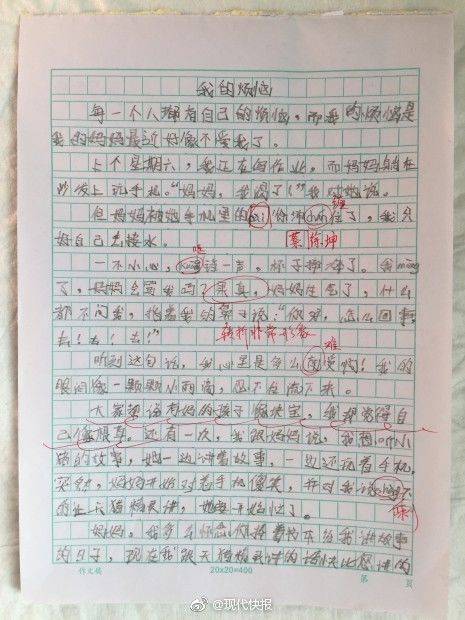 我的烦恼
每一个人都有自己的烦恼，而我的烦恼是
我的妈妈最近好像不爱我了。
上个星期六，我正在写作业，而妈妈躺在
沙发上玩手机。“妈妈，我渴了！”我对她说。
但妈妈被她手机里的
住了，我只
缠
好自己去接水。
蔡徐坤
一不小心，
一声，杯子摔碎了。我
了，妈妈会骂我吗？果真，妈妈生气了，什么
都不问我，指着我的鼻子说：“你呀，怎么回事，
去！去！去！”
转折非常形象
难
听到这句话，我心里是多么
受啊！我的
眼泪像一颗颗小雨滴，忍不住流下来。
大家都说有妈的孩子像块宝，我却觉得自
己像根草。还有一次，我跟妈妈说，我想听小
猪的故事，她一边讲着故事，一边还看手机，
突然，妈妈开始对着手机傻笑，并对我说
不
的让天猫精灵讲，她
开始忙了。
妈妈，我多么怀念你捧着书本给我讲故事
的日子，现在我跟天猫精灵讲的话快比您讲的
作文稿
20×20=400
第 页
@现代快报